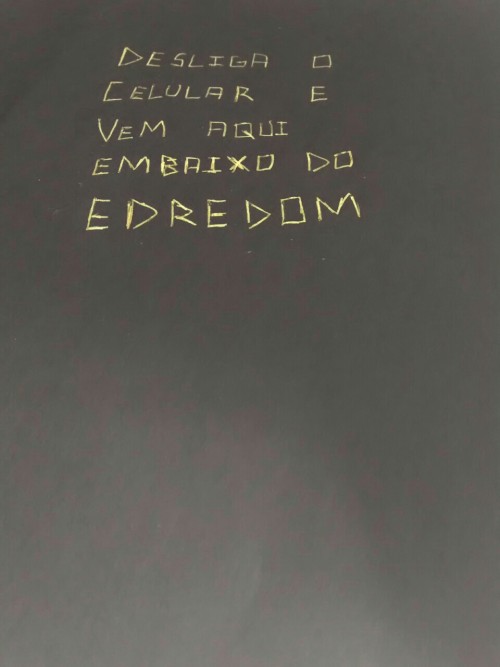 DESLIGA O
CELULAR E
VEM AQUI
EMBAIXO DO
EDREDOM